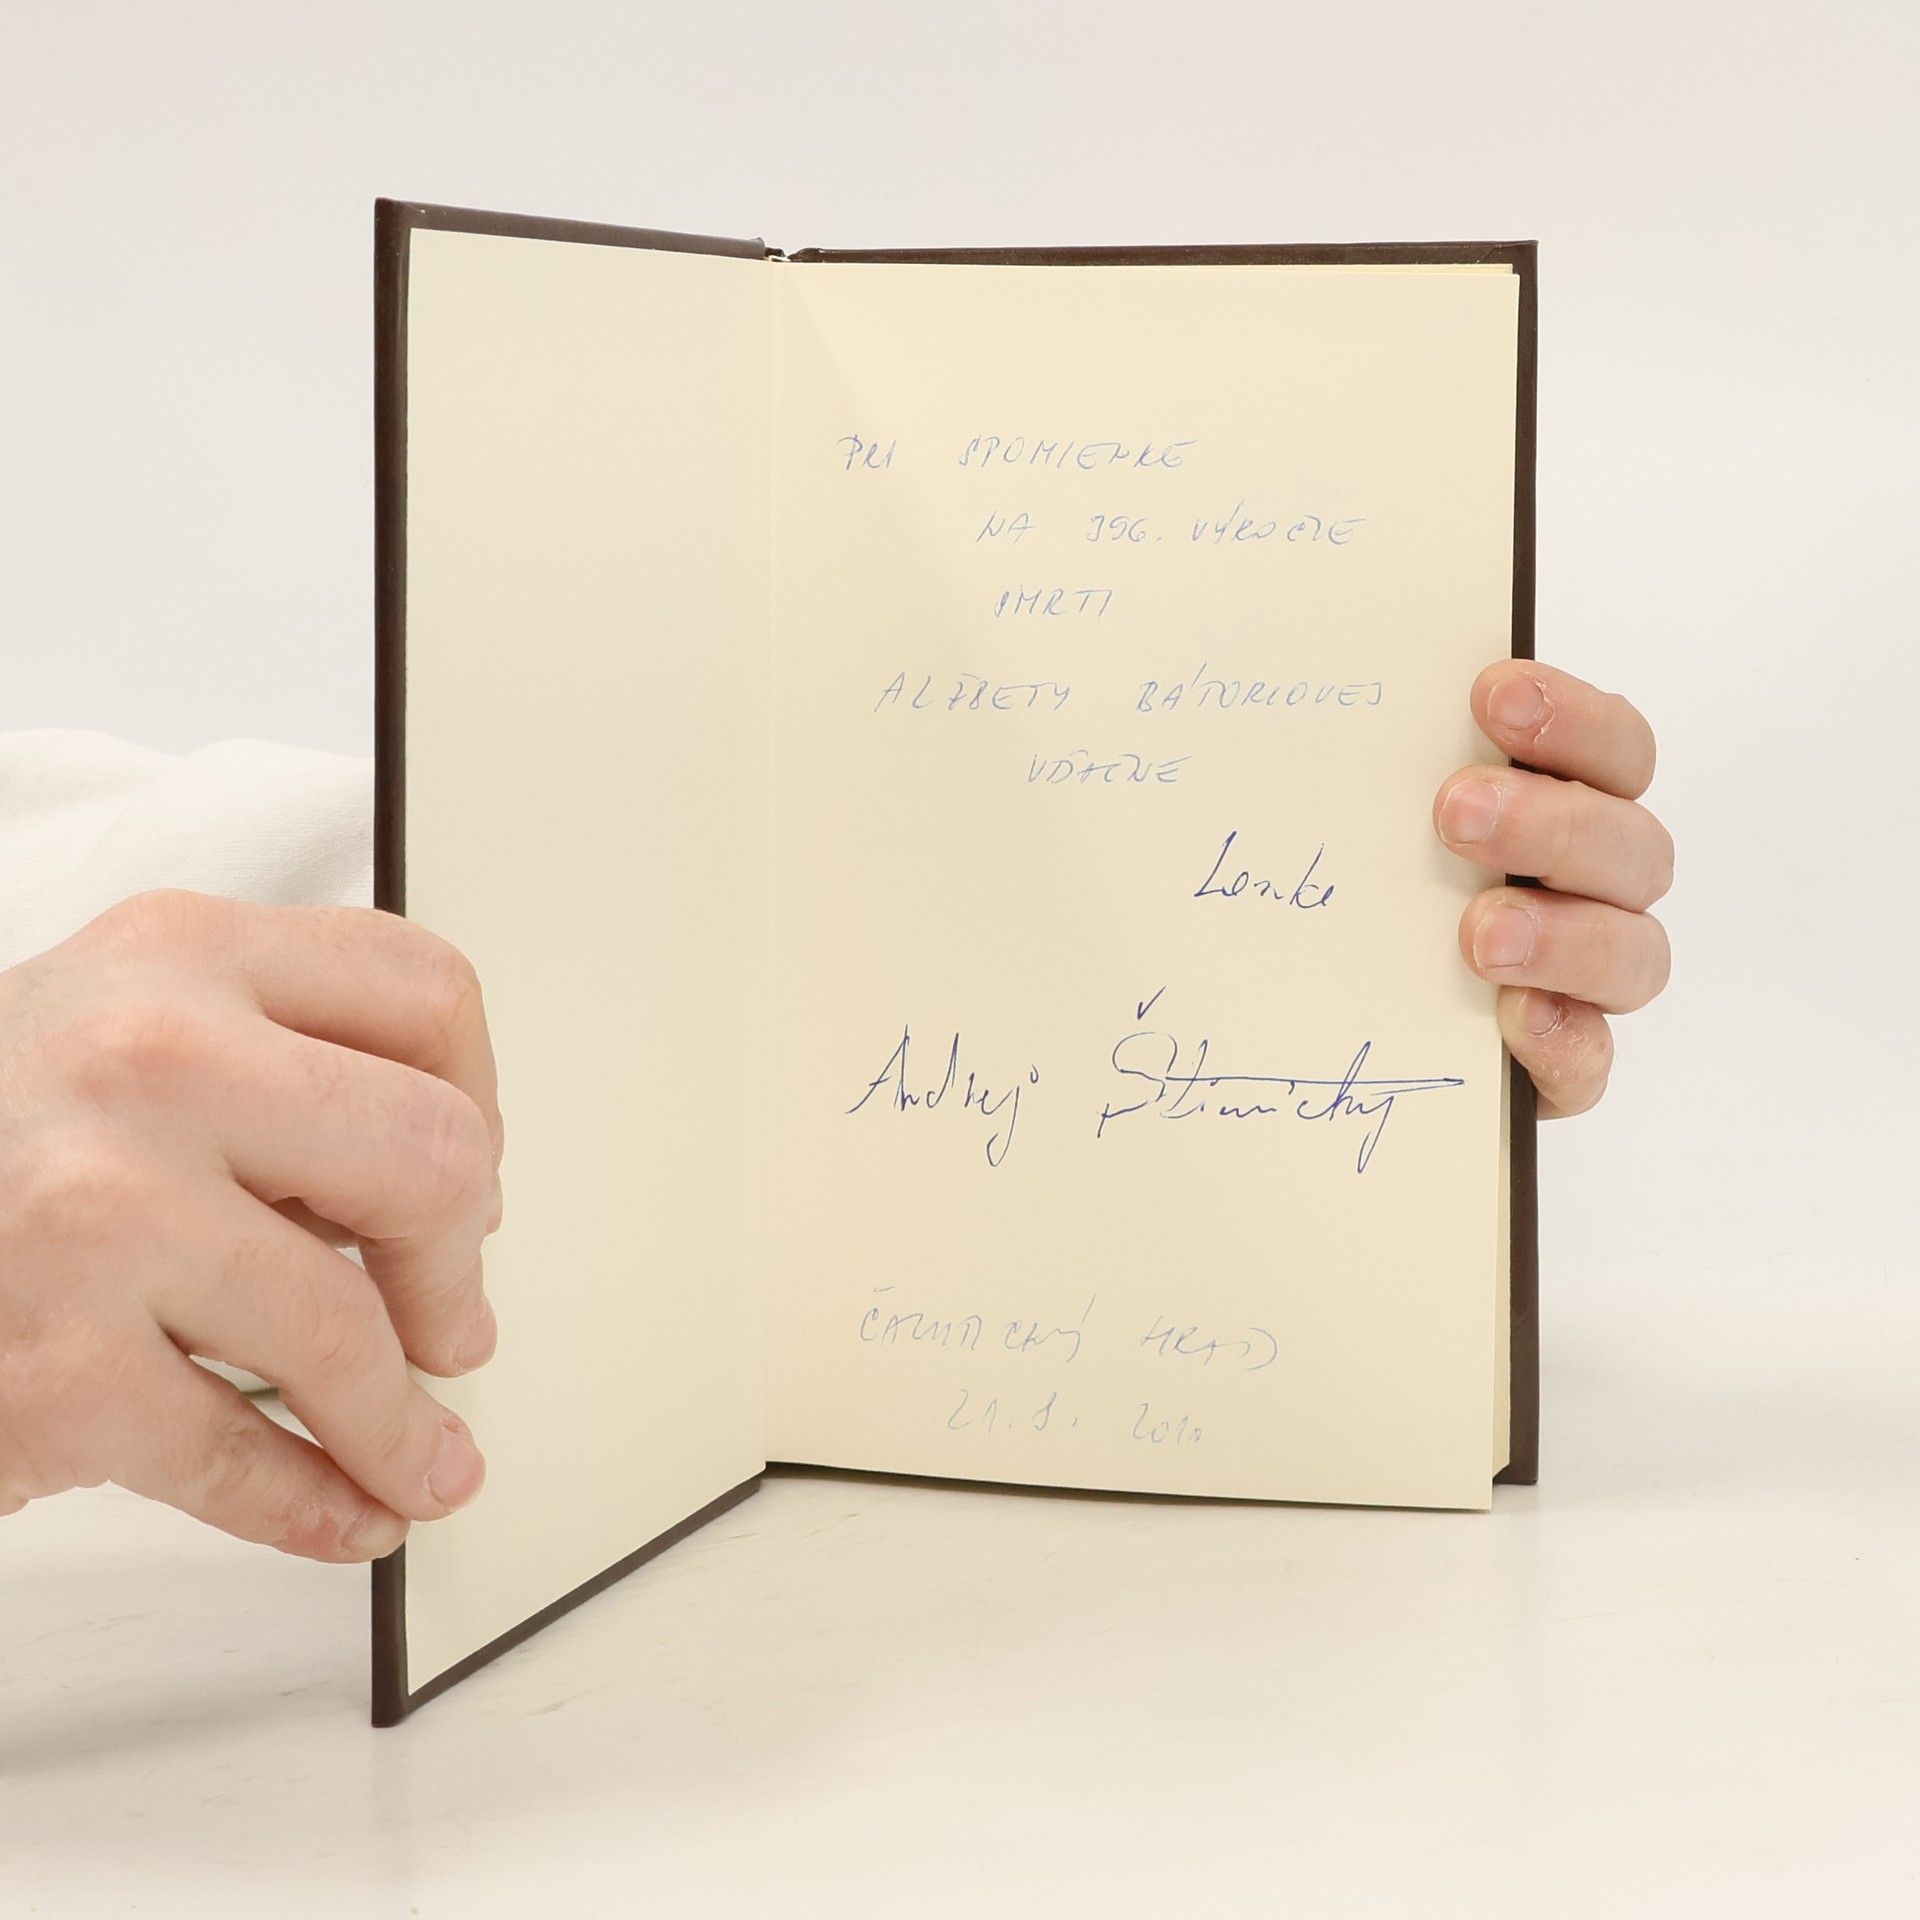 PRI SPOMIENKE
NA 396. VÝROČIE
SMRTI
ALŽBETY BÁTORIOVEJ
VĎAČNE
Lenke
Andrej Štiavnický
ČACHTICKÝ HRAD
21. 8. 2010